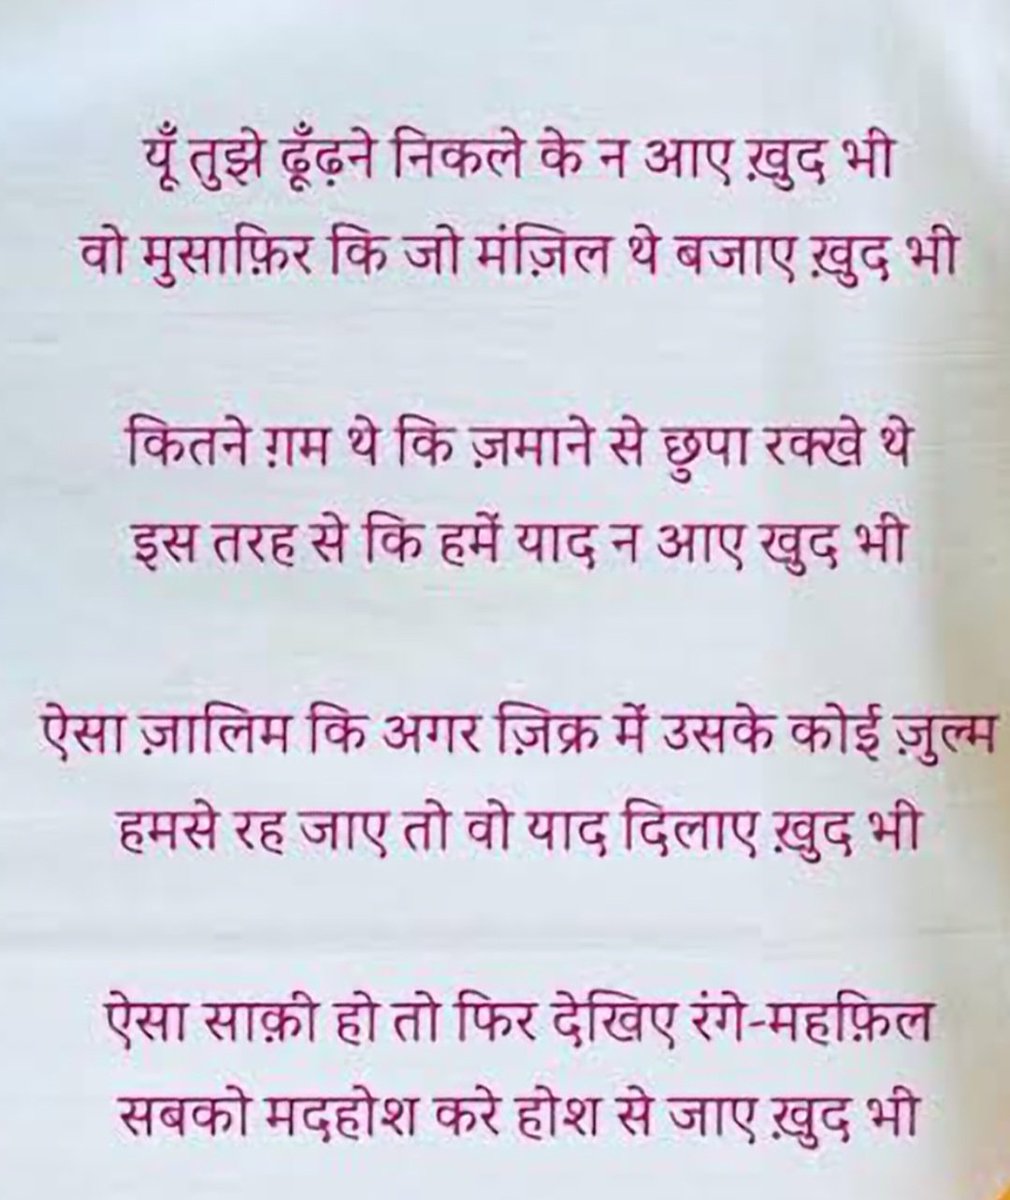 यूँ तुझे ढूँढ़ने निकले के न आए ख़ुद भी
वो मुसाफ़िर कि जो मंज़िल थे बजाए ख़ुद भी
कितने ग़म थे कि ज़माने से छुपा रक्खे थे
इस तरह से कि हमें याद न आए खुद भी
ऐसा ज़ालिम कि अगर ज़िक्र में उसके कोई ज़ुल्म
हमसे रह जाए तो वो याद दिलाए ख़ुद भी
ऐसा साक़ी हो तो फिर देखिए रंगे-महफ़िल
सबको मदहोश करे होश से जाए ख़ुद भी